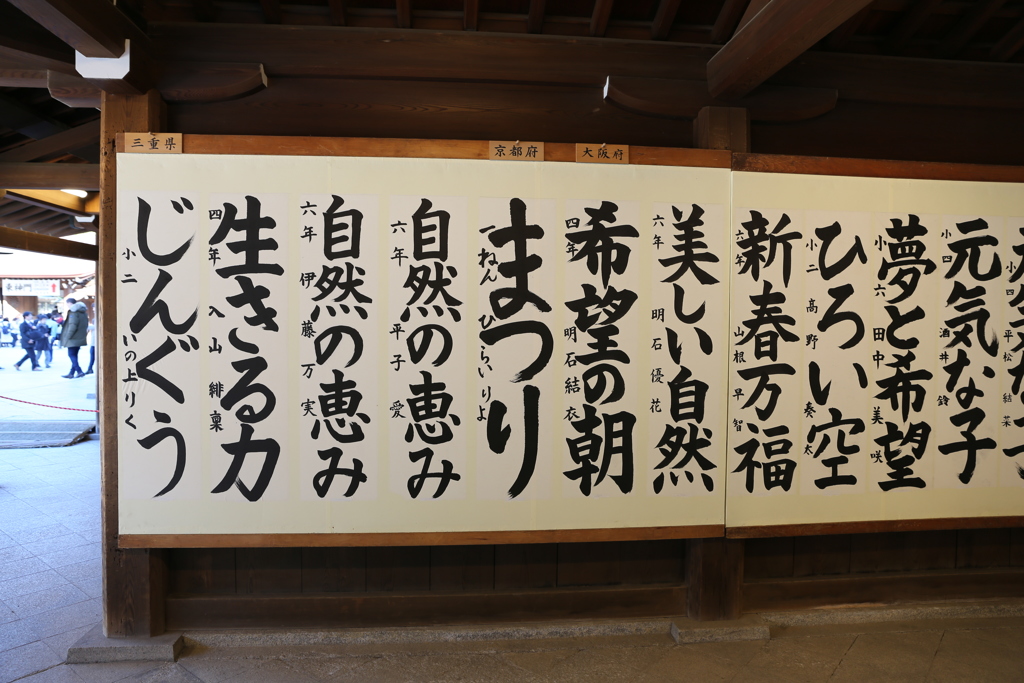 小四 平松
元気な子
小四 酒井 鈴
夢と希望
小六 田中 美咲
ひろい空
小二 高野 奏太
新春万福
六年 山根 早智
美しい自然
六年 明石 優花
大阪府
希望の朝
四年 明石 結衣
京都府
まつり
一ねん ひらい りよ
自然の恵み
六年 平子 愛
自然の恵み
六年 伊藤 万実
生きる力
四年 入山 緋凛
三重県
じんぐう
小二 いの上 りく